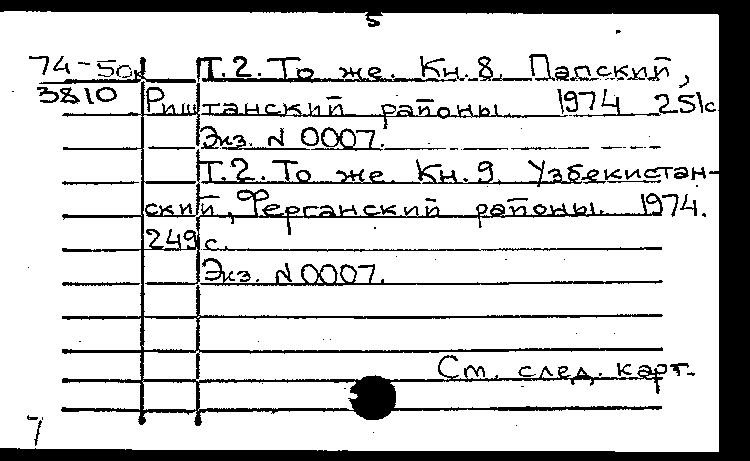 5
74-50к Т.2. То же. Кн.8. Папский,
3810 Риштанский районы 1974 251с
Экз. N 0007.
Т.2. То же. Кн.9. Узбекистан-
ский, Ферганский районы. 1974.
249 с.
Экз. N 0007.
См. след. карт.
7